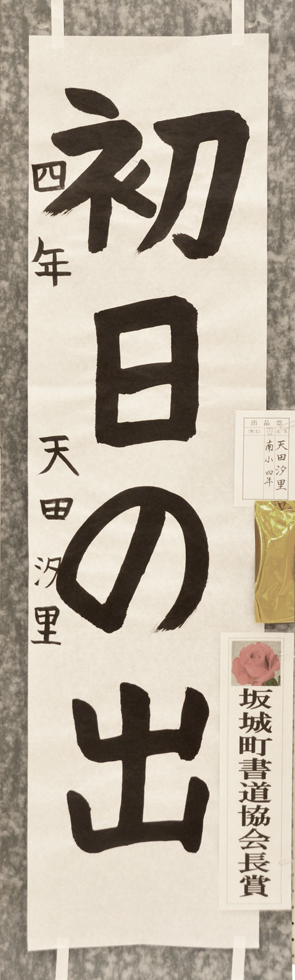 初日の出
四年 天田汐里
出品票
天田汐里
南小四年
坂城町書道協会長賞